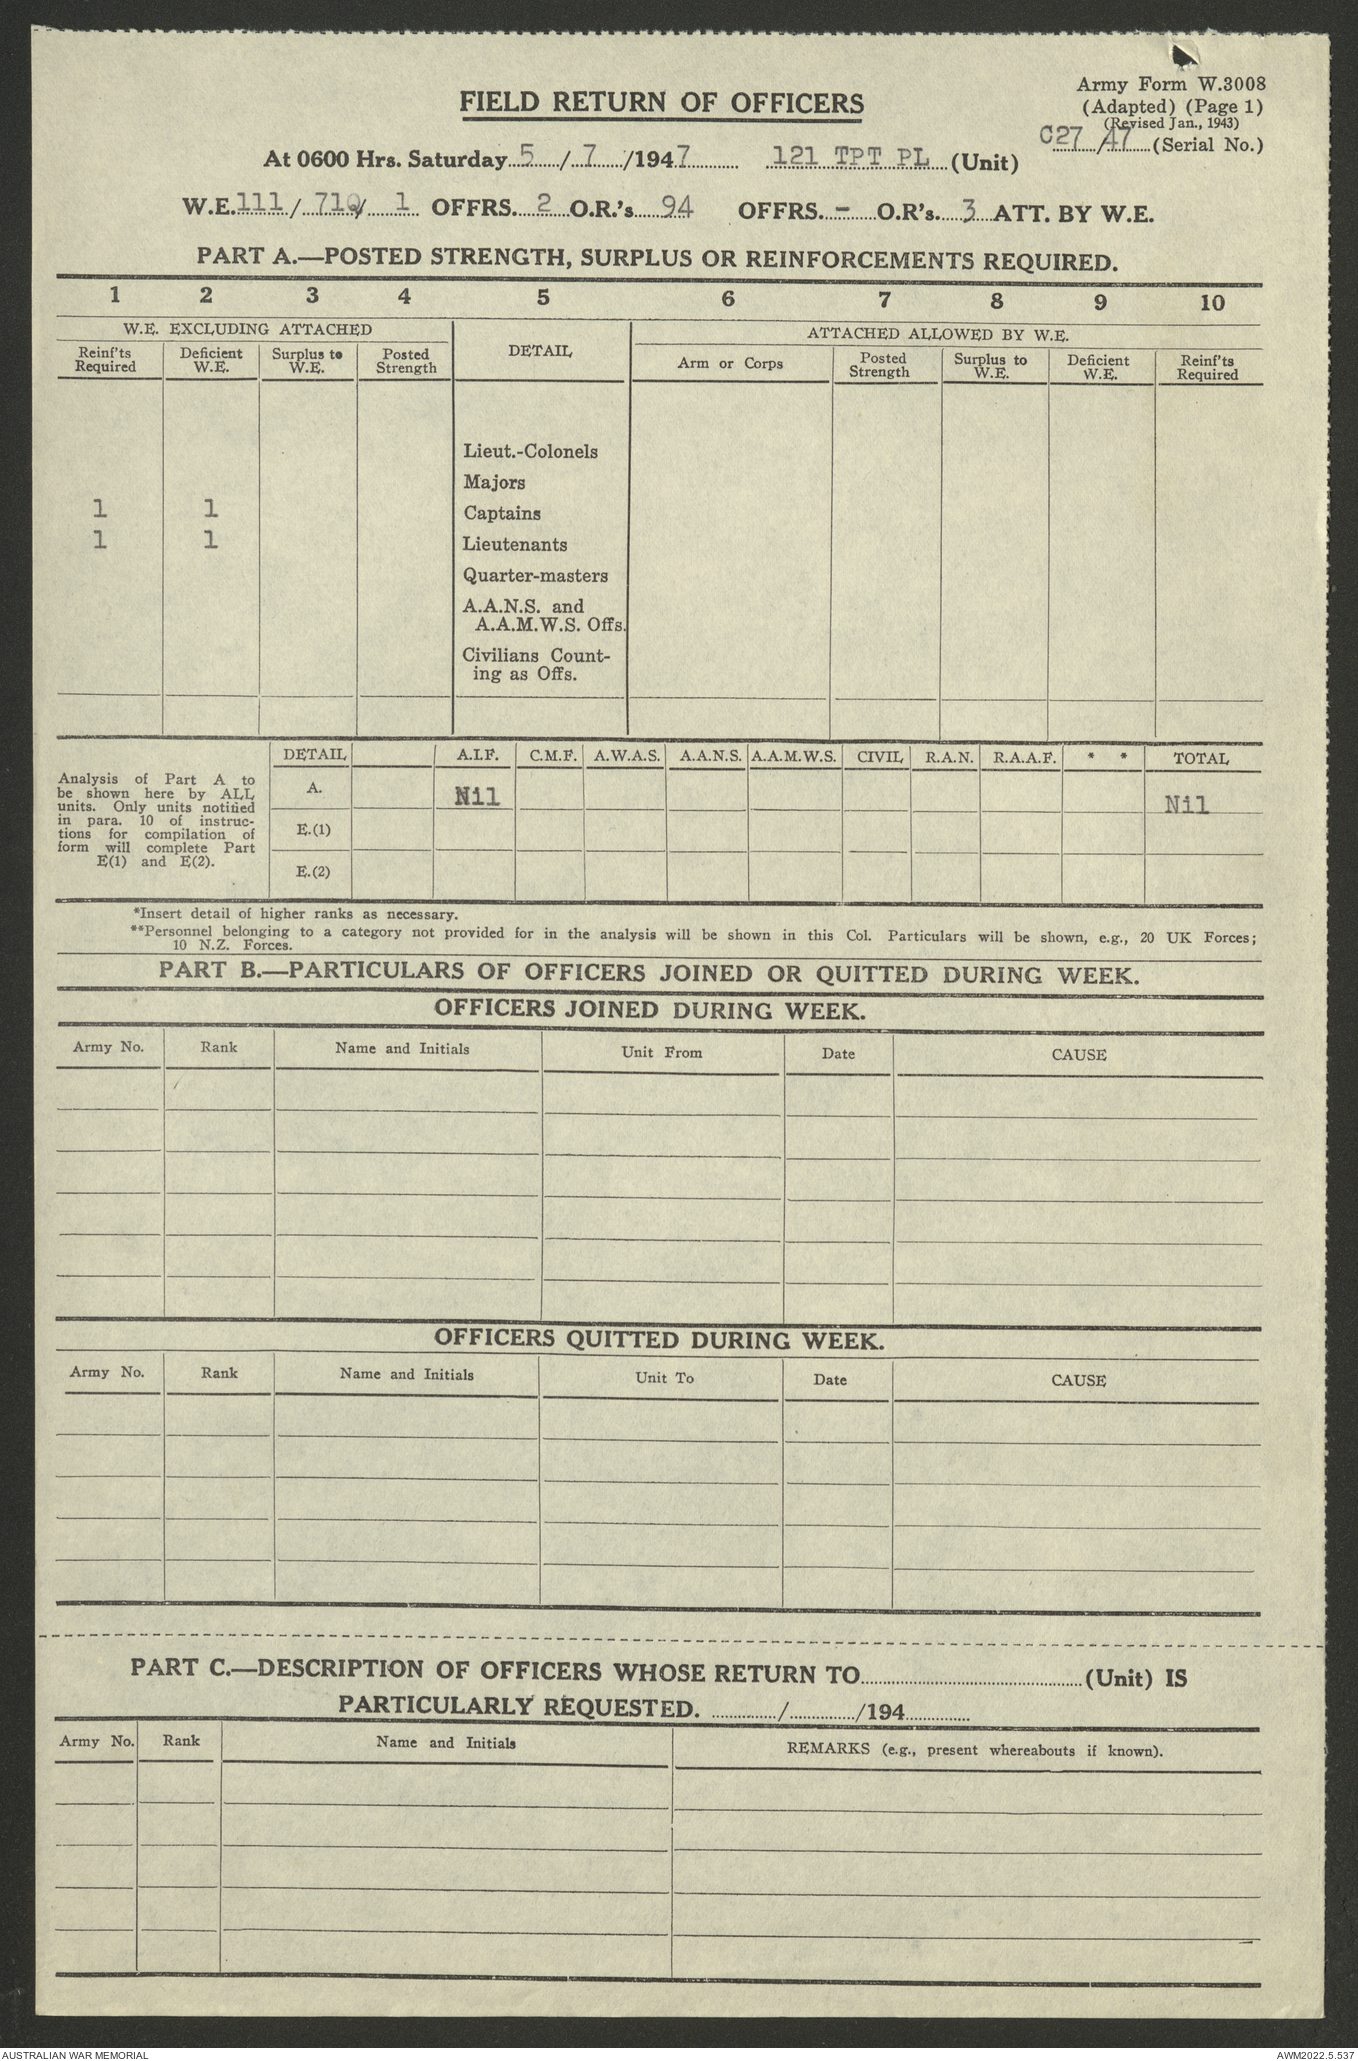 Army Form W.3008
FIELD RETURN OF OFFICERS
(Adapted) (Page 1)
(Revised Jan., 1943)
C27/47 (Serial No.)
At 0600 Hrs. Saturday 5/7/1947 121 TPT PL (Unit)
W.E. 111/71Q/1 OFFRS. 2 O.R.'s 94 OFFRS. - O.R's. 3 ATT. BY W.E.
PART A.—POSTED STRENGTH, SURPLUS OR REINFORCEMENTS REQUIRED.
1 2 3 4 5 6 7 8 9 10
W.E. EXCLUDING ATTACHED DETAIL ATTACHED ALLOWED BY W.E.
Reinf'ts Required Deficient W.E. Surplus to W.E. Posted Strength Arm or Corps Posted Strength Surplus to W.E. Deficient W.E. Reinf'ts Required
Lieut.-Colonels
Majors
1 1 Captains
1 1 Lieutenants
Quarter-masters
A.A.N.S. and
A.A.M.W.S. Offs.
Civilians Count-
ing as Offs.
DETAIL A.I.F. C.M.F. A.W.A.S. A.A.N.S. A.A.M.W.S. CIVIL R.A.N. R.A.A.F. * * TOTAL
Analysis of Part A to
be shown here by ALL
units. Only units notified
in para. 10 of instruc-
tions for compilation of
form will complete Part
E(1) and E(2).
A. Nil Nil
E.(1)
E.(2)
*Insert detail of higher ranks as necessary.
**Personnel belonging to a category not provided for in the analysis will be shown in this Col. Particulars will be shown, e.g., 20 UK Forces;
10 N.Z. Forces.
PART B.—PARTICULARS OF OFFICERS JOINED OR QUITTED DURING WEEK.
OFFICERS JOINED DURING WEEK.
Army No. Rank Name and Initials Unit From Date CAUSE
OFFICERS QUITTED DURING WEEK.
Army No. Rank Name and Initials Unit To Date CAUSE
PART C.—DESCRIPTION OF OFFICERS WHOSE RETURN TO (Unit) IS
PARTICULARLY REQUESTED. / /194
Army No. Rank Name and Initials REMARKS (e.g., present whereabouts if known).
AUSTRALIAN WAR MEMORIAL AWM2022.5.537